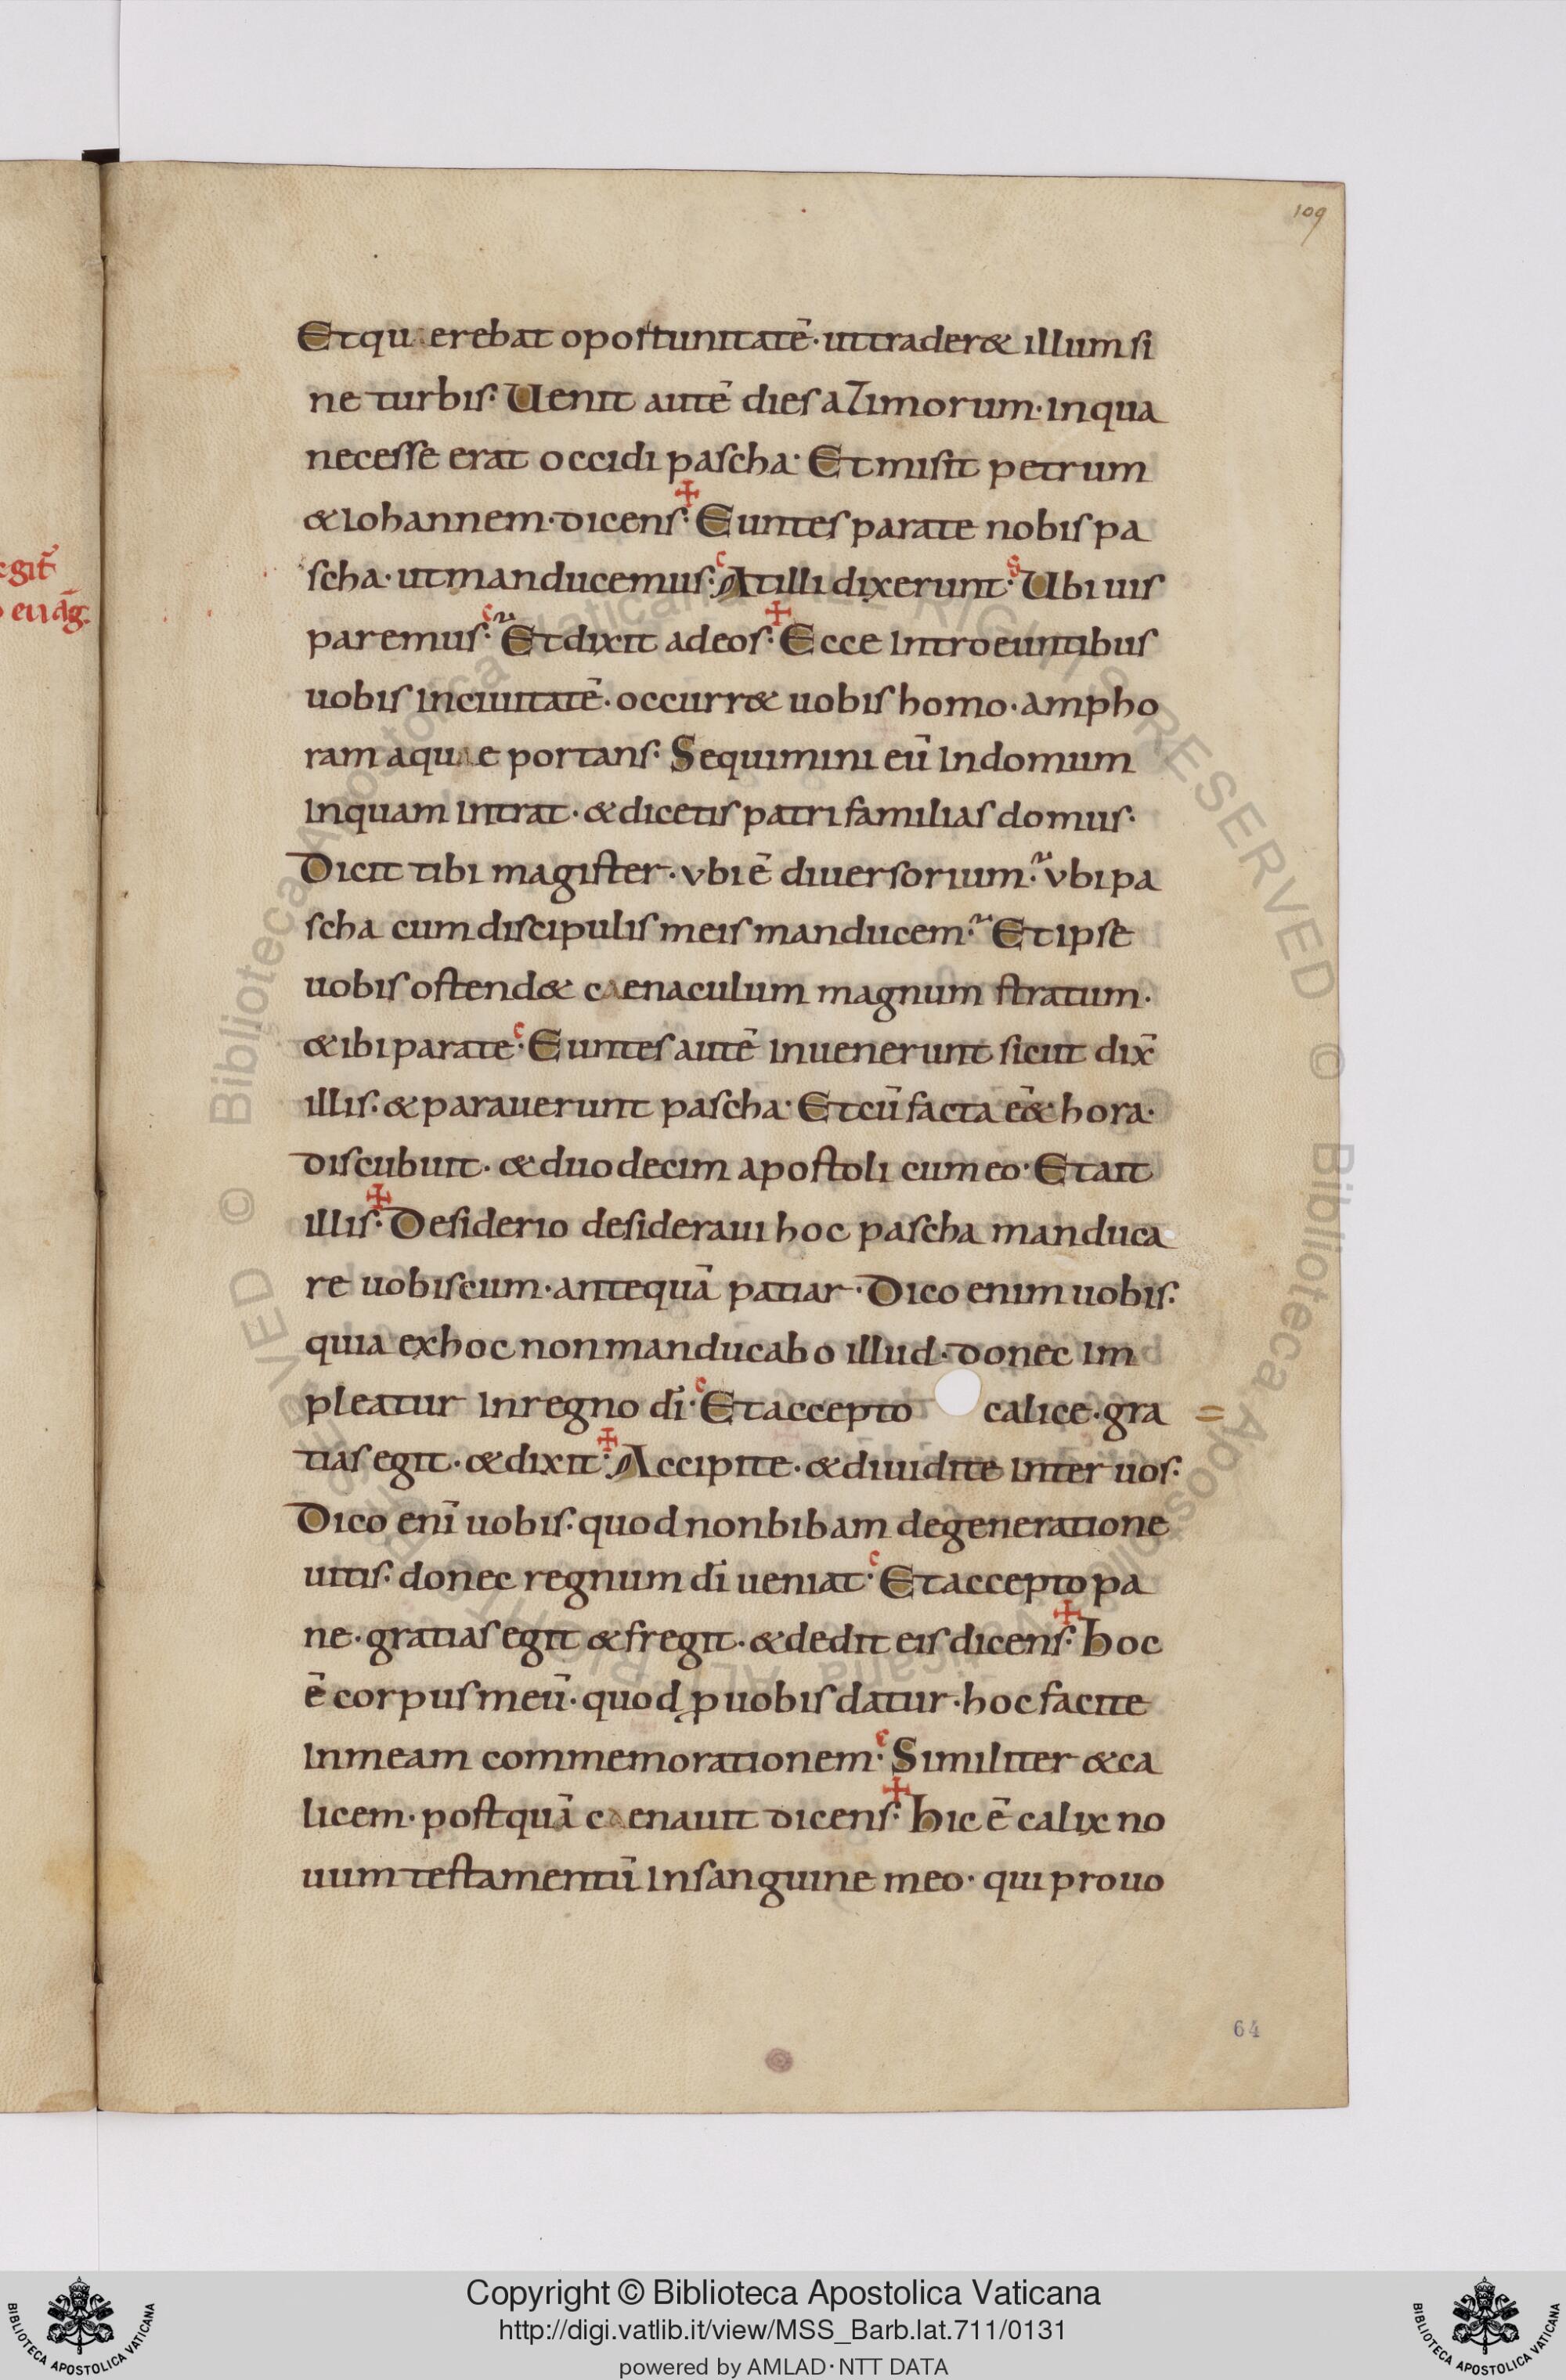 109
Et qu erebat oportunitatē· ut trader& illum si
ne turbis· Uenit autē dies azimorum· in qua
necesse erat occidi pascha· Et misit petrum
& iohannem· dicens· ✠ Euntes parate nobis pa
scha· ut manducemus· c At illi dixerunt· s Ubi uis
paremus· c Et dixit ad eos· ✠ Ecce introeuntibus
uobis in ciuitatē· occurr& uobis homo· ampho
ram aquae portans· Sequimini eū in domum
in quam intrat· & dicetis patri familias domus·
Dicit tibi magister· ubi ē diuersorium· ubi pa
scha cum discipulis meis manducem· Et ipse
uobis ostend& caenaculum magnum stratum·
& ibi parate· c Euntes autē inuenerunt sicut dix̄
illis· & parauerunt pascha· Et cū facta ēē& hora·
discubuit· & duodecim apostoli cum eo· Et ait
illis· ✠ Desiderio desideraui hoc pascha manduca
re uobiscum· antequā patiar· Dico enim uobis·
quia ex hoc non manducabo illud· donec im
pleatur in regno dī· c Et accepto calice· gra
tias egit· & dixit· ✠ Accipite· & diuidite inter uos·
Dico enī uobis· quod non bibam de generatione
uitis· donec regnum dī ueniat· c Et accepto pa
ne· gratias egit & fregit· & dedit eis dicens· ✠ Hoc
ē corpus meū· quod ꝓ uobis datur· hoc facite
in meam commemorationem· c Similiter & ca
licem· postquā caenauit dicens· ✠ Hic ē calix no
uum testamentū in sanguine meo· qui pro uo
64
Copyright © Biblioteca Apostolica Vaticana
http://digi.vatlib.it/view/MSS_Barb.lat.711/0131
powered by AMLAD·NTT DATA
BIBLIOTECA APOSTOLICA VATICANA
BIBLIOTECA APOSTOLICA VATICANA